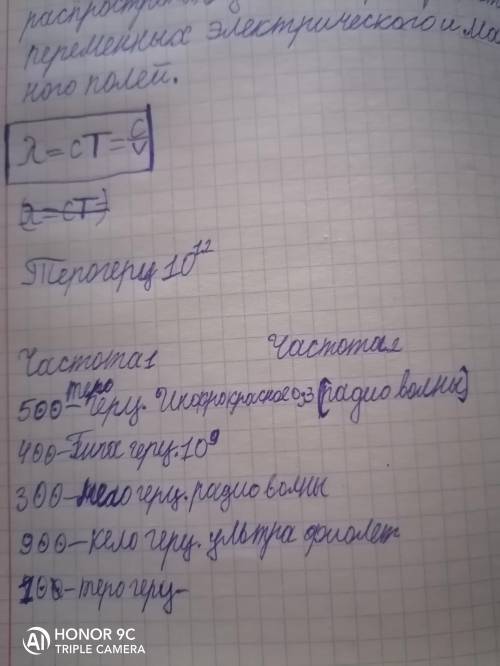 распростран
переменных электрического и ма
ного полей.
λ=cT=c/ν
(λ=cT=)
Терогерц 10¹²
Частота1 Частота2
500-теро герц. Инфрокрасное 0,3 (радио волны)
400-Гига герц. 10⁹
300-мегогерц. радио волны
900-келогерц. ультра фиолет
100-терогерц-
HONOR 9C
TRIPLE CAMERA